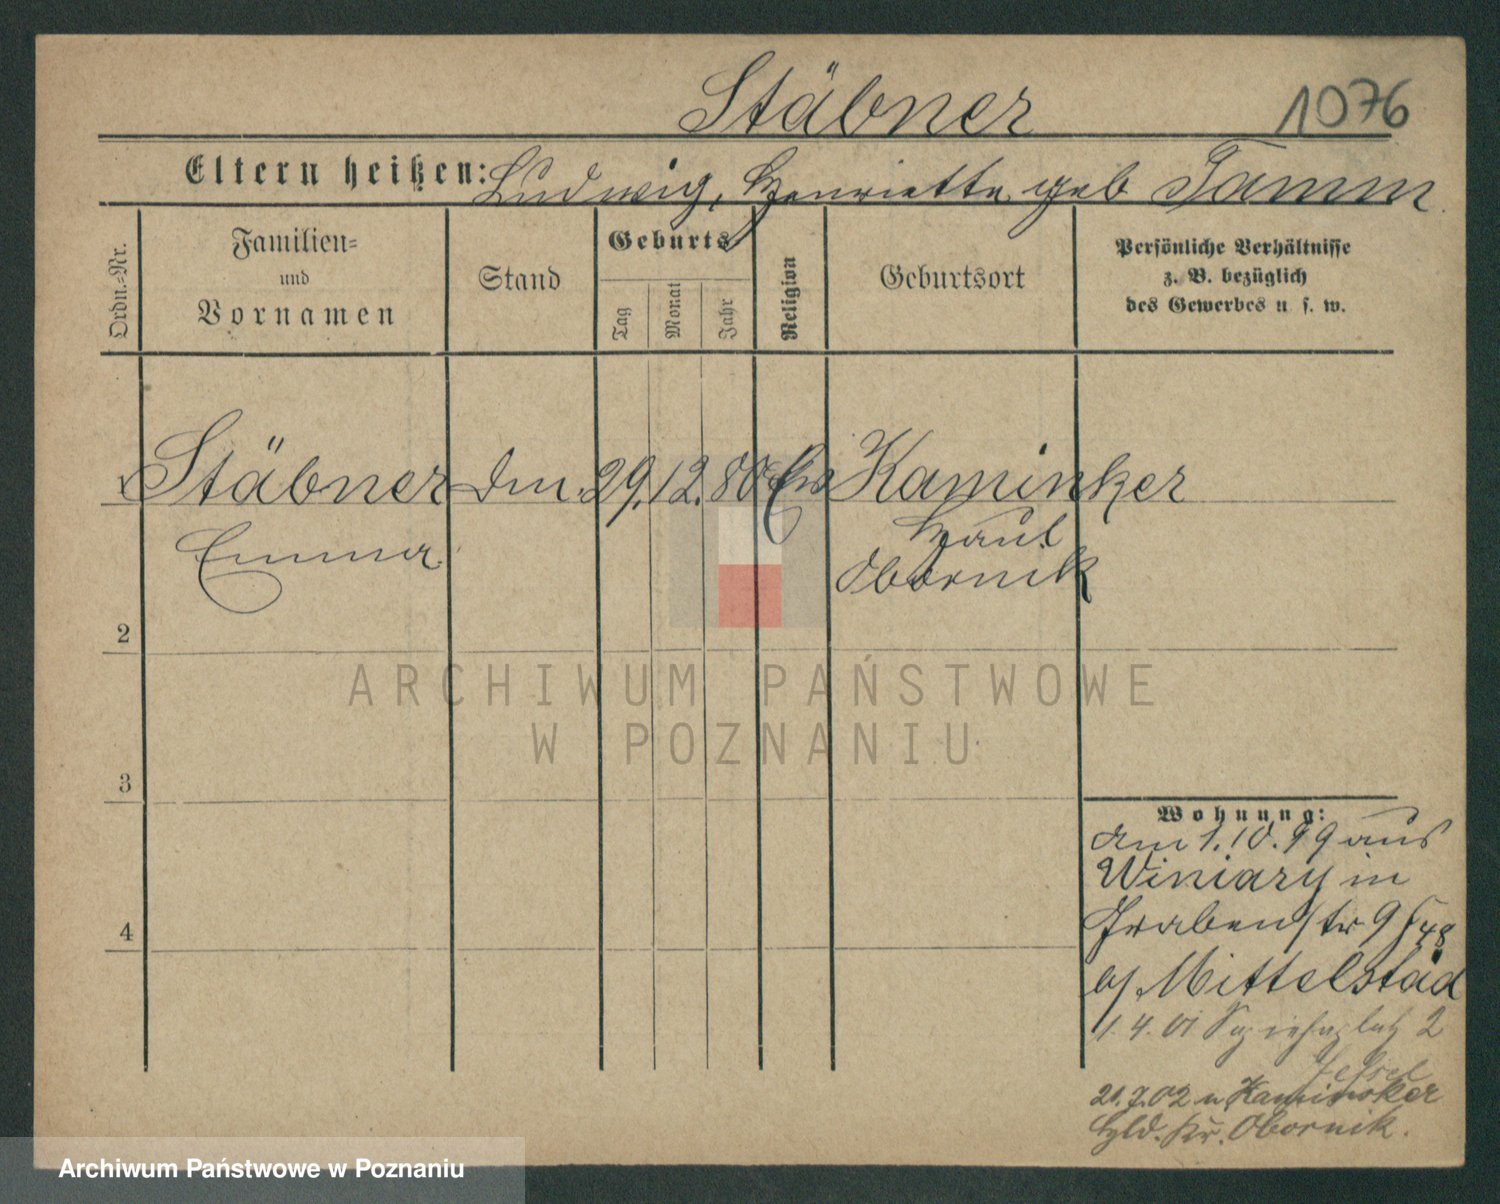 Stäbner 1076
Eltern heißen: Ludwig, Henriette geb Tamm
Ordn.-Nr.
Familien-
und
Vornamen
Stand
Geburts-
Tag
Monat
Jahr
Religion
Geburtsort
Persönliche Verhältnisse
z. B. bezüglich
des Gewerbes u. s. w.
1 Stäbner Dm. 29. 12. 80 Ev Kaminker
Emma Haul
Obornik
2
3
4
Wohnung:
am 1.10.99 aus
Winiary in
Grabenstr 9
b/ Mittelstäd
1. 4. 01 2
21.7.02 n Kaminsker
Hld. Kr. Obornik.
ARCHIWUM PAŃSTWOWE
W POZNANIU
Archiwum Państwowe w Poznaniu